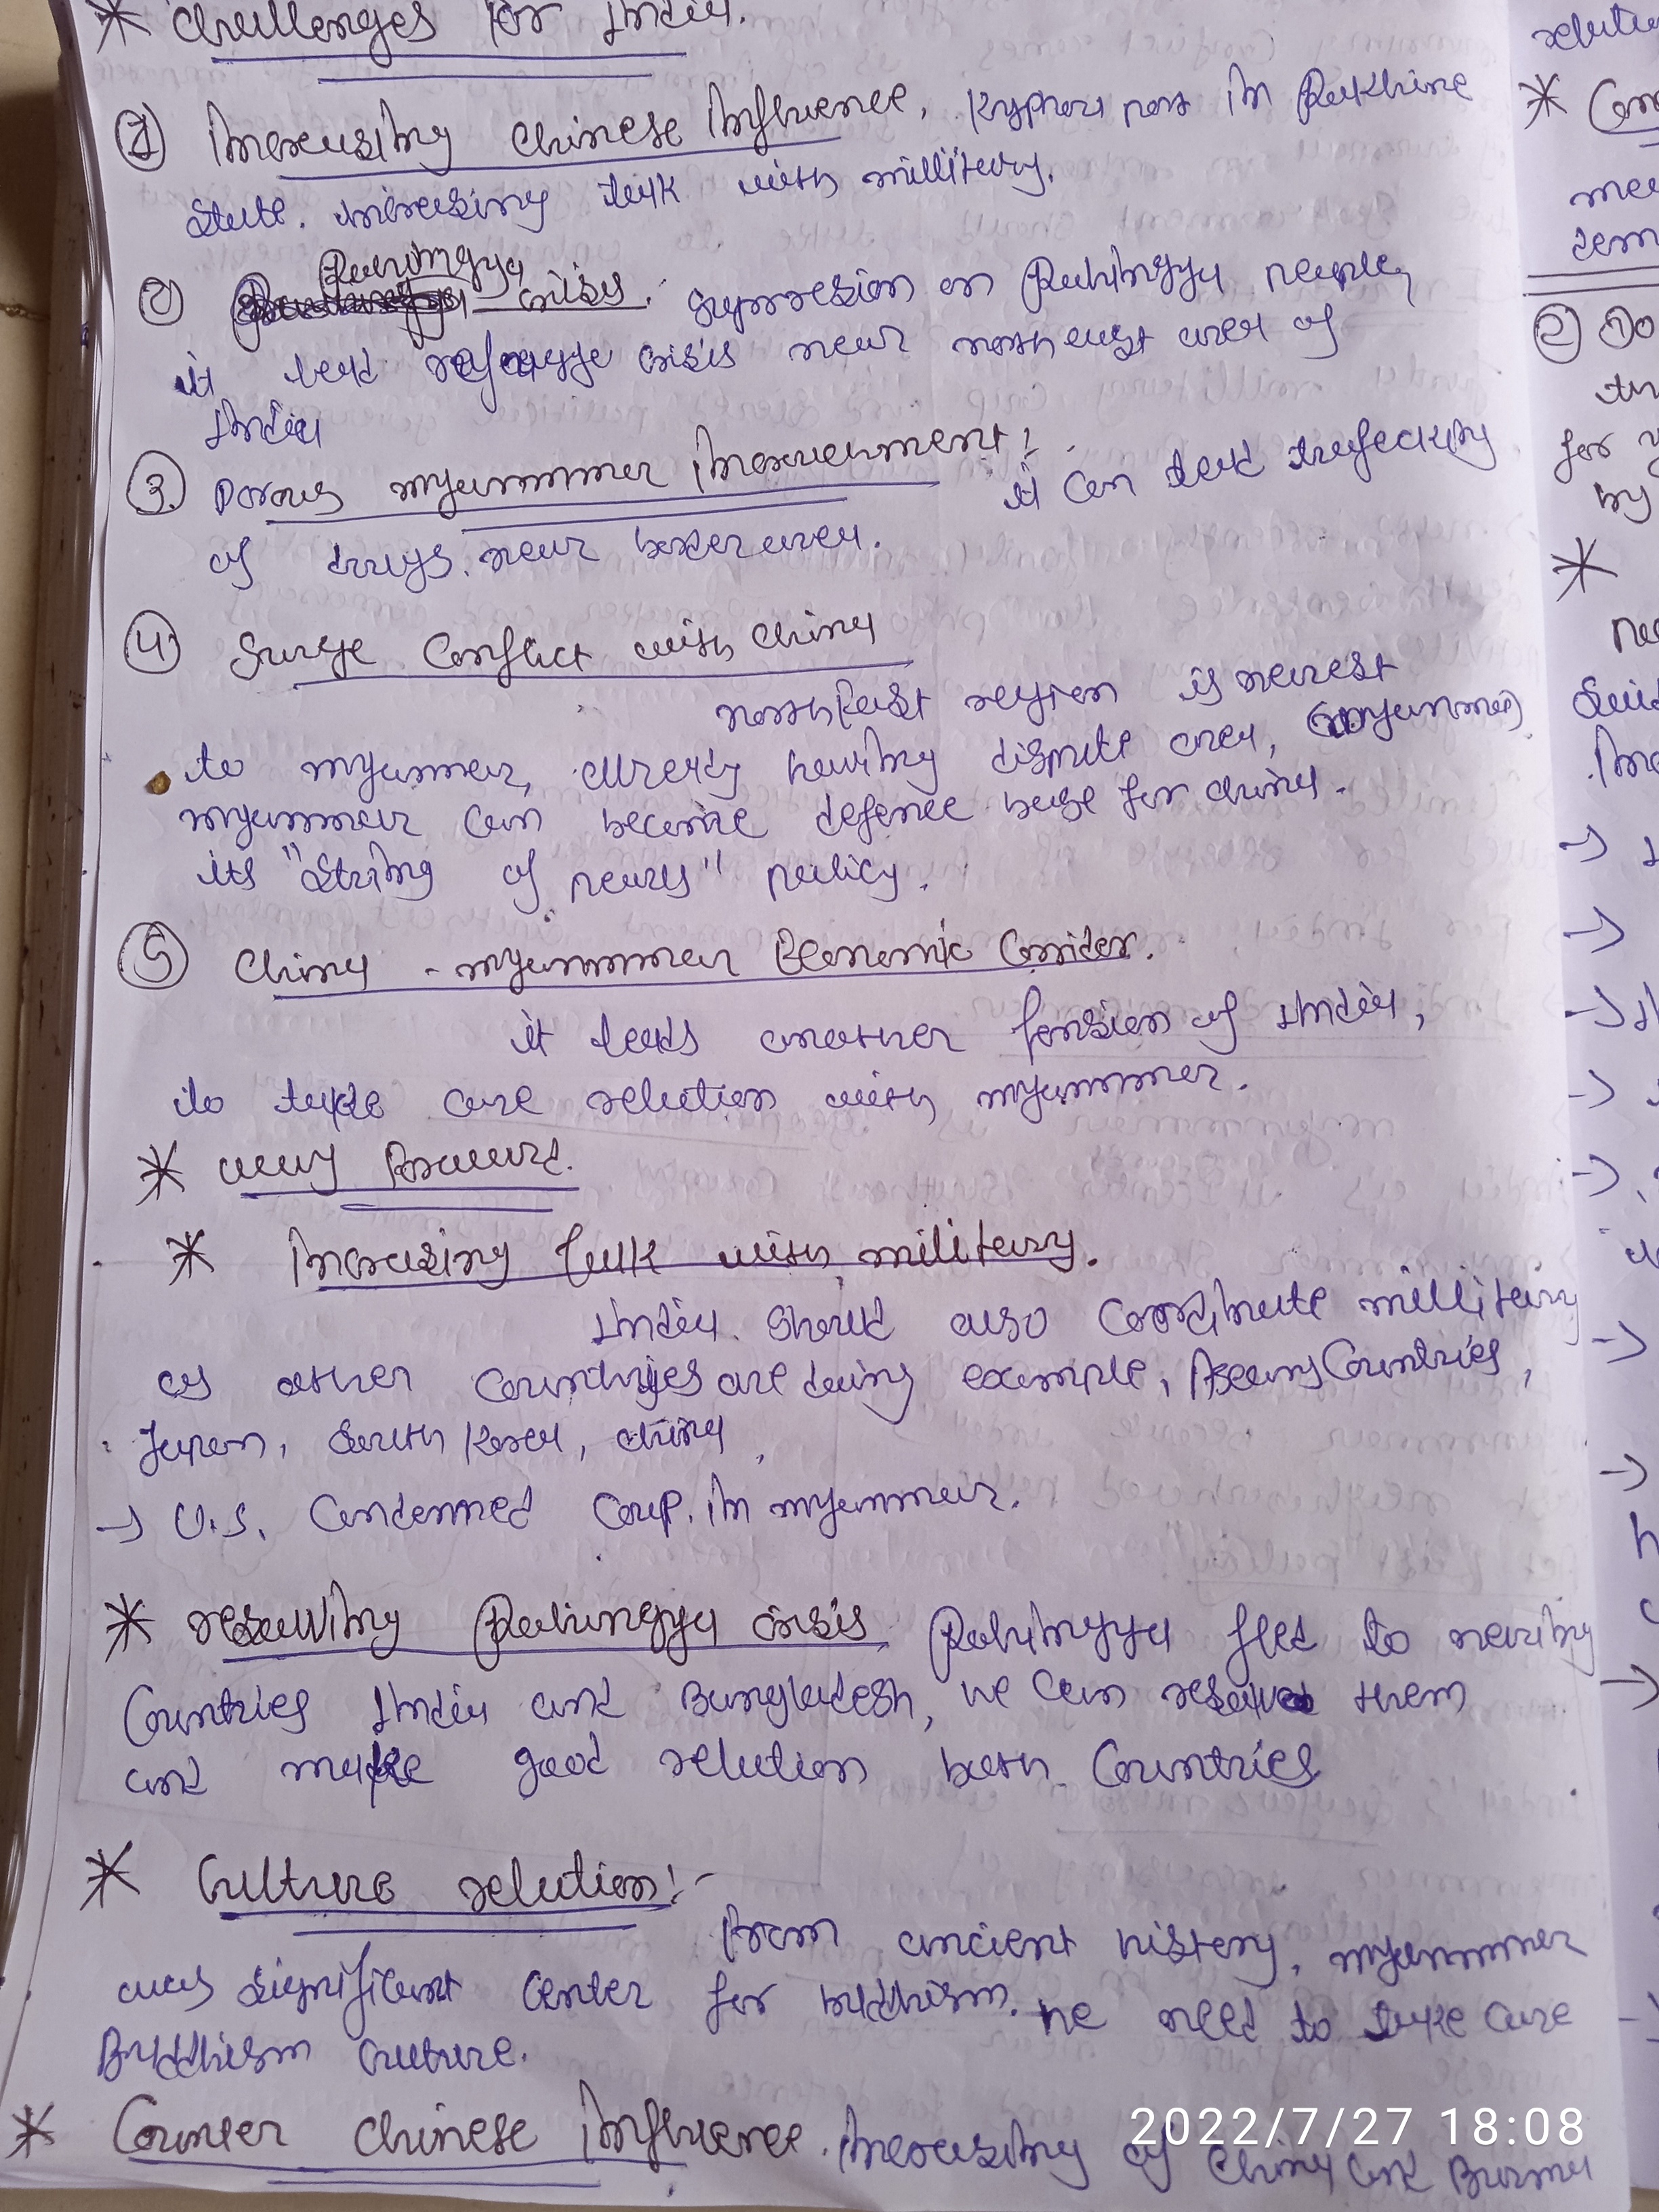 * Challenges for India.
① Increasing Chinese Influence, Kyphau port in Rakhine
State. increasing talk with millitary.
② Rohingya crisis. suppression on Rohingya people,
it lead refugge crisis near north east area of
India
③. Porous myanmmar :
it can lead trafecking
of drugs. near border area.
④ Surge Conflict with China
north East region is nearest
to myanmar, already having dispute area, (myanmmar)
myanmmar can become defence base for china.
its "String of pearls" policy.
⑤ China - myanmmar Economic Corridor.
it leads another tension of India,
to take care relation with myanmmar.
* way Forward.
* Increasing talk with military.
India. should also coordinate millitary
as other countries are doing example, Aseans Countries,
Japan, South Korea, china,
→ U.S. Condemned Coup. in myanmmar.
* resolving Rohingya crisis Rohingya fled to nearby
Countries India and Bangladesh, we can resolve them
and make good relation both Countries
* Culture relation:-
From ancient history, myanmmar
was significant center for buddhism. we need to take care
Buddhism culture.
* Counter Chinese Influence. Increasing of China and Burma
relation
* Com
② Do
for
by
*
→
→
→
→
→
→
→
→
→
2022/7/27 18:08